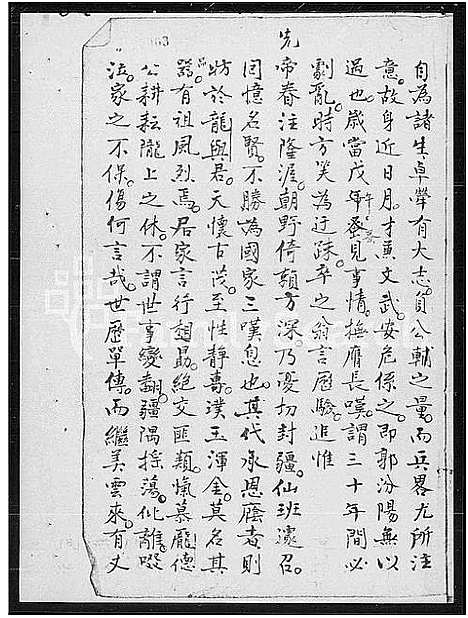 自為諸生卓犖有大志。負公輔之量。而兵畧尤所注
意。故身近日月。才兼文武。安危係之。即郭汾陽無以
過也。歲當戊午。蚤見事情。撫膺長嘆。謂三十年間必
劇亂。時方笑為迂疎。卒之翁言歷驗。追惟
先
帝眷注隆渥。朝野倚頼方深。乃憂切封疆。仙班遽召。
回憶名賢。不勝為國家三嘆息也。其代承恩廕者。則
昉於龍與君。天懷古茂。至性靜專。璞玉渾金。莫名其
器。有祖風烈焉。居家言行超朂。絕交匪類。慨慕龐德
公耕耘隴上之休。不謂世事變翻。疆隅搖蕩。仳離啜
泣。家之不保。傷何言哉。世歷單傳。而繼美雲來。有丈